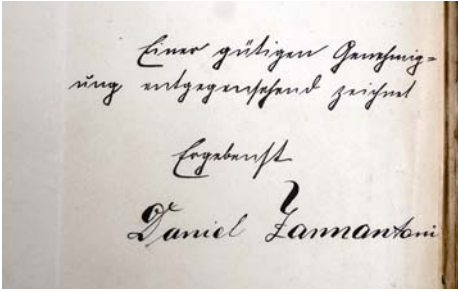 Einer gütigen Genehmig=
ung entgegensehend zeichnet
Ergebenst
Daniel Zannantoni